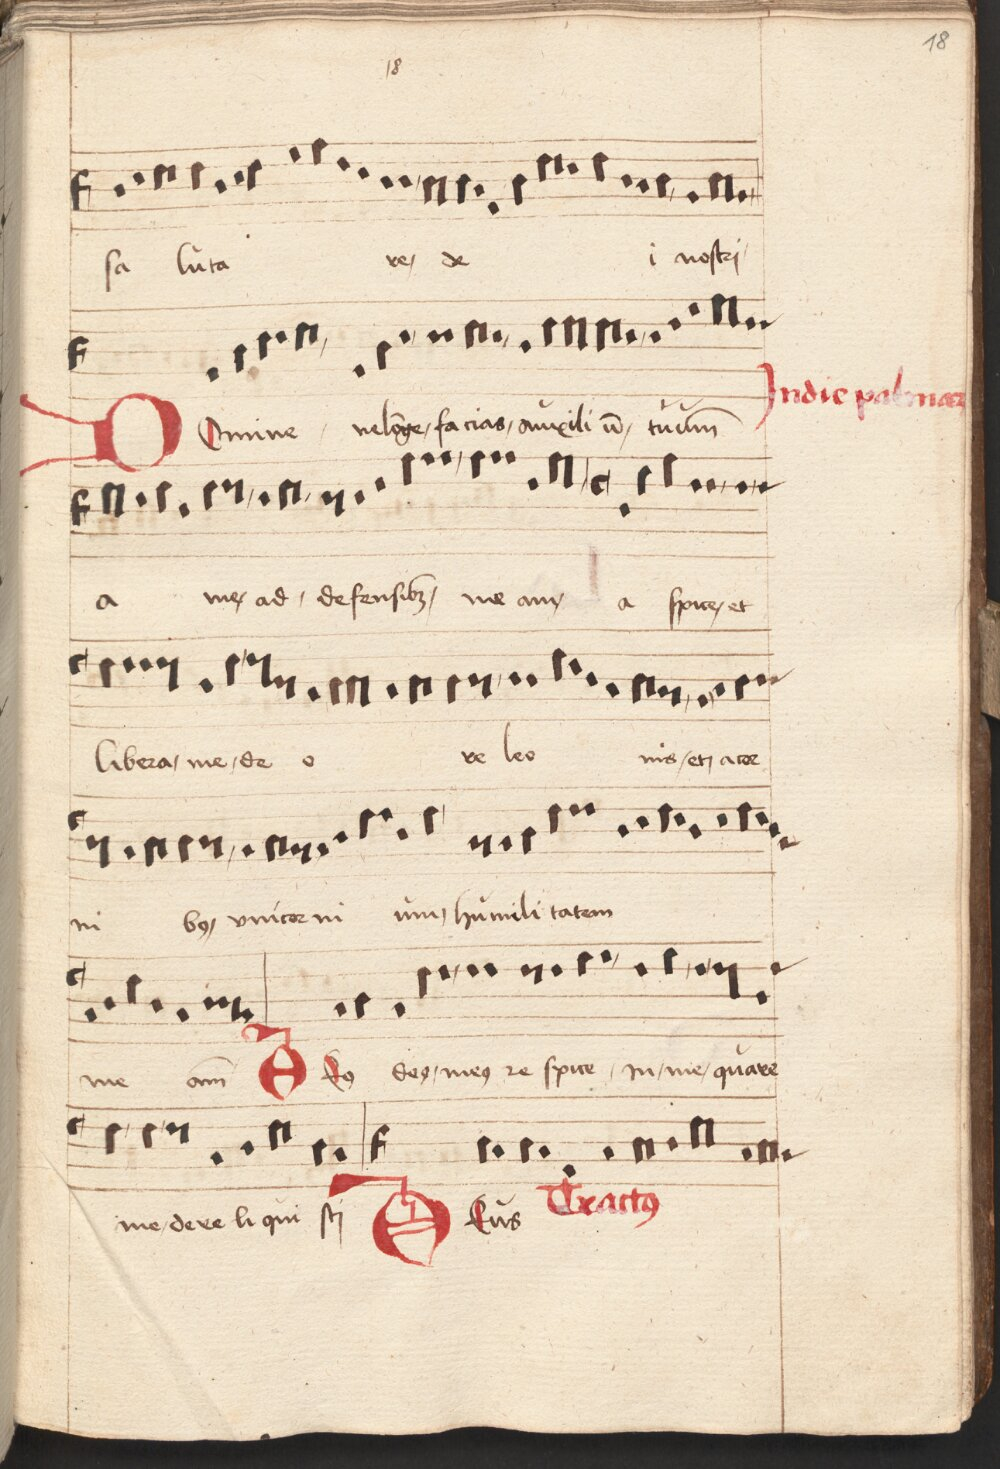 18
18
sa luta re de i nostri
In die palmar
Omine ne longe facias auxiliū tuum
a me ad defensibz me am a spice et
libera me de o re leo nis et a cor
ni bꝯ vnicorni um humilitatem
me am Deꝯ deꝯ meꝯ re spice in me quare
me dere liqui sti Deus Tractꝯ